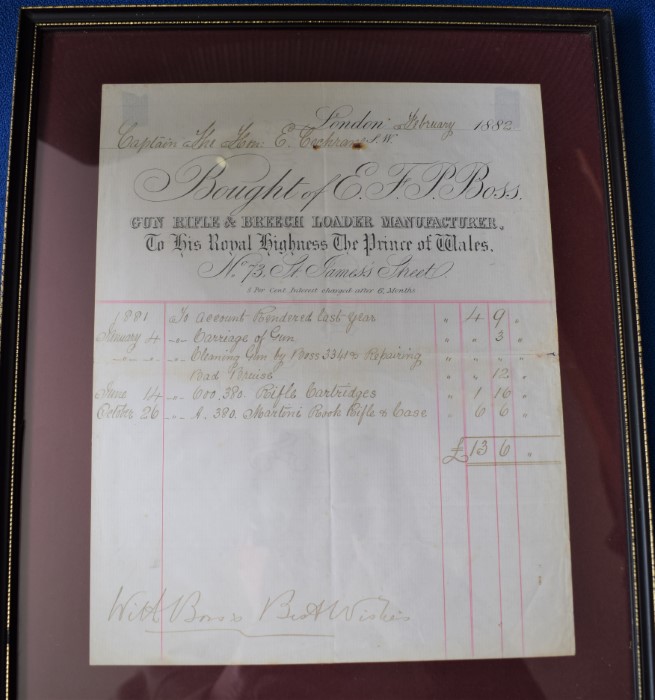 London February 1882
Captain The Hon: E. Cochrane S.W.
Bought of E. F. P. Boss.
GUN RIFLE & BREECH LOADER MANUFACTURER,
To His Royal Highness The Prince of Wales.
No. 73, St. James's Street.
5 Per Cent. Interest charged after 6, Months.
1881 To Account Rendered last Year " 4 9 "
January 4 -"- Carriage of Gun " " 3 "
-"- -"- -"- Cleaning Gun by Boss 3341 & Repairing " " " "
Bad Bruise " " 12 "
June 14 -"- 600 .380. Rifle Cartridges " 1 16 "
October 26 -"- A .380. Martini Rook Rifle & Case " 6 6 "
£ 13 6 "
With Boss's Best Wishes